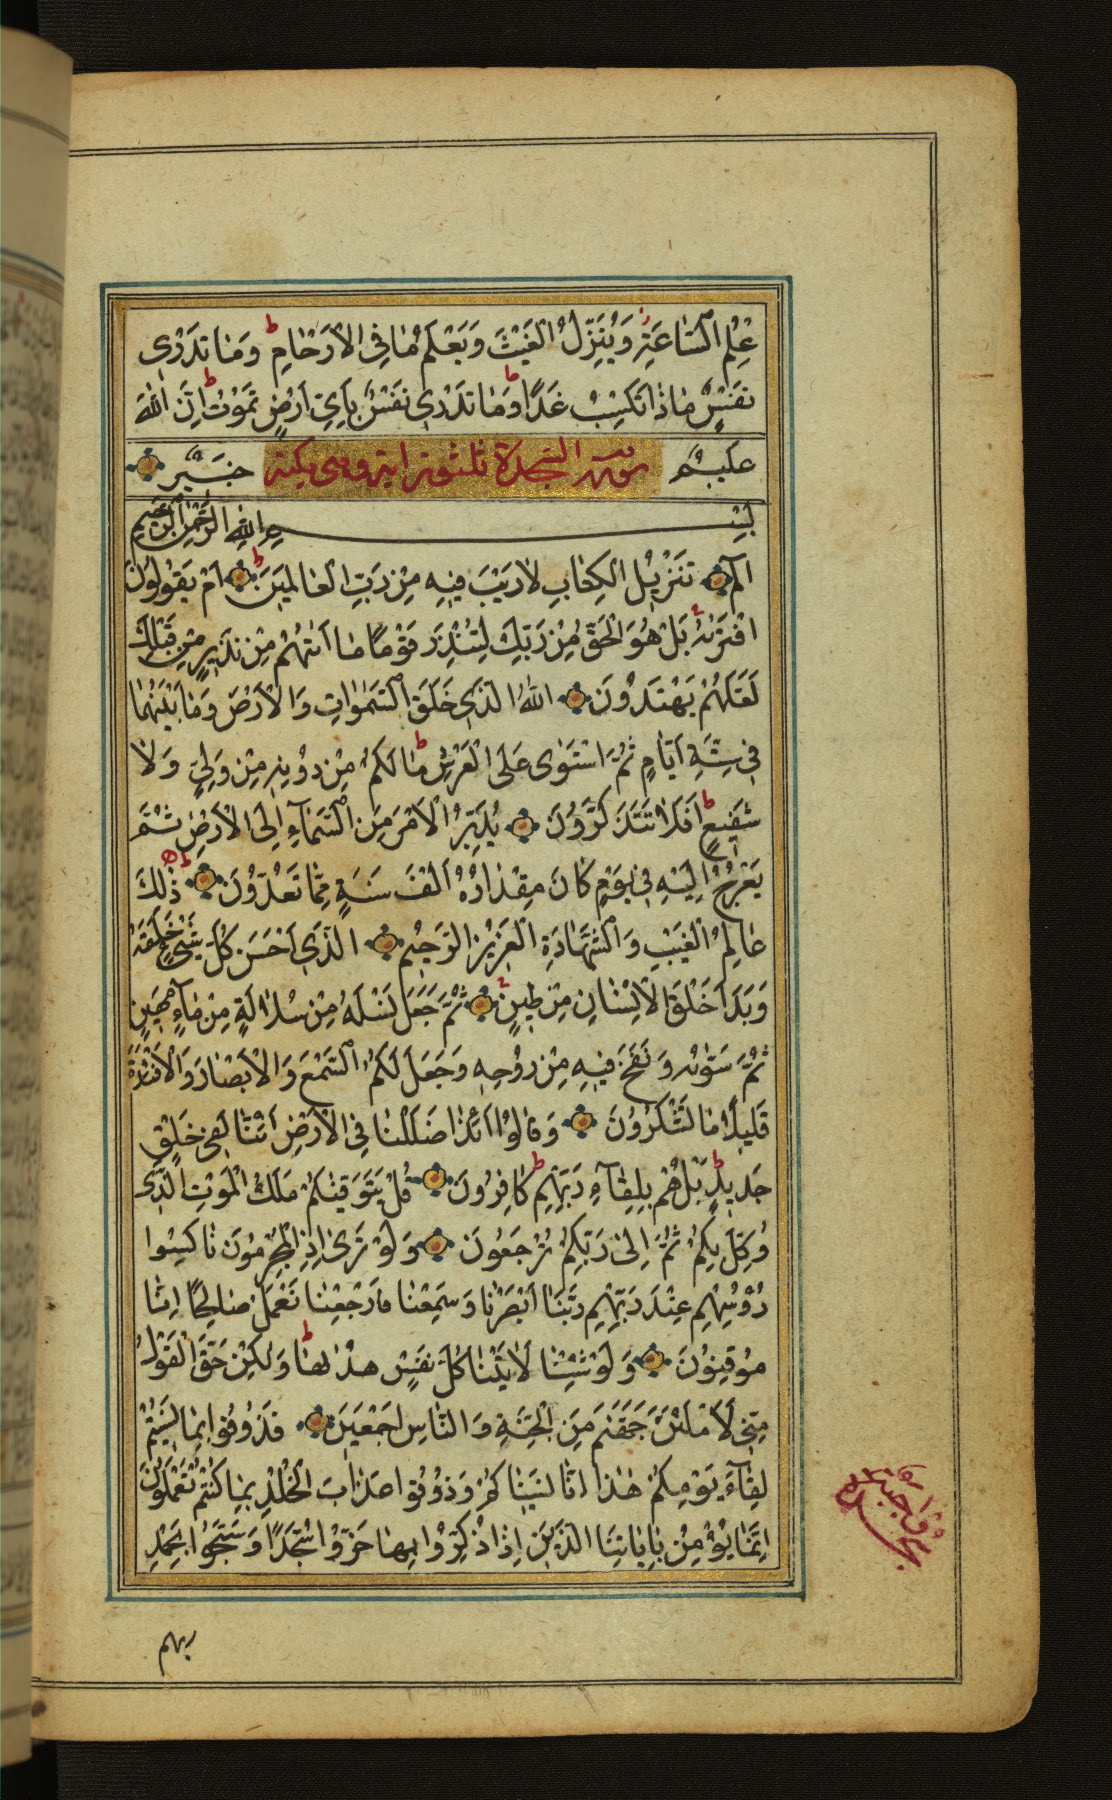 عِلْمُ السَّاعَةِ وَيُنَزِّلُ الْغَيْثَ وَيَعْلَمُ مَا فِي الْأَرْحَامِ ط وَمَا تَدْرِي
نَفْسٌ مَاذَا تَكْسِبُ غَدًا ط وَمَا تَدْرِي نَفْسٌ بِأَيِّ أَرْضٍ تَمُوتُ ط إِنَّ اللهَ
عَلِيمٌ سورة السجدة ثلثون اية وهى مكية خَبِيرٌ
بِسْمِ اللهِ الرَّحْمٰنِ الرَّحِيمِ
الٓمٓ تَنْزِيلُ الْكِتَابِ لَا رَيْبَ فِيهِ مِنْ رَبِّ الْعَالَمِينَ ط أَمْ يَقُولُونَ
افْتَرٰىهُ بَلْ هُوَ الْحَقُّ مِنْ رَبِّكَ لِتُنْذِرَ قَوْمًا مَا أَتٰىهُمْ مِنْ نَذِيرٍ مِنْ قَبْلِكَ
لَعَلَّهُمْ يَهْتَدُونَ اللهُ الَّذِي خَلَقَ السَّمٰوَاتِ وَالْأَرْضَ وَمَا بَيْنَهُمَا
فِي سِتَّةِ أَيَّامٍ ثُمَّ اسْتَوٰى عَلَى الْعَرْشِ ط مَا لَكُمْ مِنْ دُونِهِ مِنْ وَلِيٍّ وَلَا
شَفِيعٍ ط أَفَلَا تَتَذَكَّرُونَ يُدَبِّرُ الْأَمْرَ مِنَ السَّمَآءِ إِلَى الْأَرْضِ ثُمَّ
يَعْرُجُ إِلَيْهِ فِي يَوْمٍ كَانَ مِقْدَارُهُ أَلْفَ سَنَةٍ مِمَّا تَعُدُّونَ ذٰلِكَ
عَالِمُ الْغَيْبِ وَالشَّهَادَةِ الْعَزِيزُ الرَّحِيمُ الَّذِي أَحْسَنَ كُلَّ شَيْءٍ خَلَقَهُ
وَبَدَأَ خَلْقَ الْإِنْسَانِ مِنْ طِينٍ ثُمَّ جَعَلَ نَسْلَهُ مِنْ سُلَالَةٍ مِنْ مَآءٍ مَهِينٍ
ثُمَّ سَوّٰىهُ وَنَفَخَ فِيهِ مِنْ رُوحِهِ وَجَعَلَ لَكُمُ السَّمْعَ وَالْأَبْصَارَ وَالْأَفْئِدَةَ
قَلِيلًا مَا تَشْكُرُونَ وَقَالُوا أَئِذَا ضَلَلْنَا فِي الْأَرْضِ أَئِنَّا لَفِي خَلْقٍ
جَدِيدٍ ط بَلْ هُمْ بِلِقَآءِ رَبِّهِمْ ط كَافِرُونَ قُلْ يَتَوَفّٰيكُمْ مَلَكُ الْمَوْتِ الَّذِي
وُكِّلَ بِكُمْ ثُمَّ إِلٰى رَبِّكُمْ تُرْجَعُونَ وَلَوْ تَرٰى إِذِ الْمُجْرِمُونَ نَاكِسُوا
رُؤُسِهِمْ عِنْدَ رَبِّهِمْ رَبَّنَا أَبْصَرْنَا وَسَمِعْنَا فَارْجِعْنَا نَعْمَلْ صَالِحًا إِنَّا
مُوقِنُونَ وَلَوْ شِئْنَا لَآتَيْنَا كُلَّ نَفْسٍ هُدٰىهَا وَلٰكِنْ حَقَّ الْقَوْلُ
مِنِّي لَأَمْلَئَنَّ جَهَنَّمَ مِنَ الْجِنَّةِ وَالنَّاسِ أَجْمَعِينَ فَذُوقُوا بِمَا نَسِيتُمْ
لِقَآءَ يَوْمِكُمْ هٰذَا إِنَّا نَسِينَاكُمْ وَذُوقُوا عَذَابَ الْخُلْدِ بِمَا كُنْتُمْ تَعْمَلُونَ
إِنَّمَا يُؤْمِنُ بِآيَاتِنَا الَّذِينَ إِذَا ذُكِّرُوا بِهَا خَرُّوا سُجَّدًا وَسَبَّحُوا بِحَمْدِ
ربهم